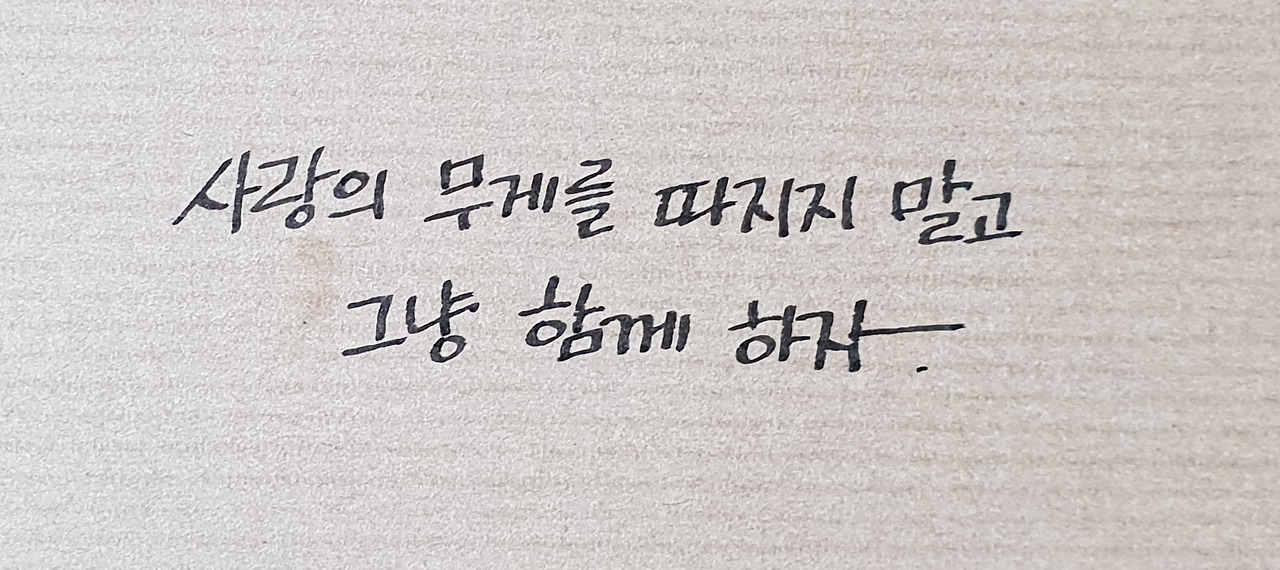 사랑의 무게를 따지지 말고
그냥 함께 하자.